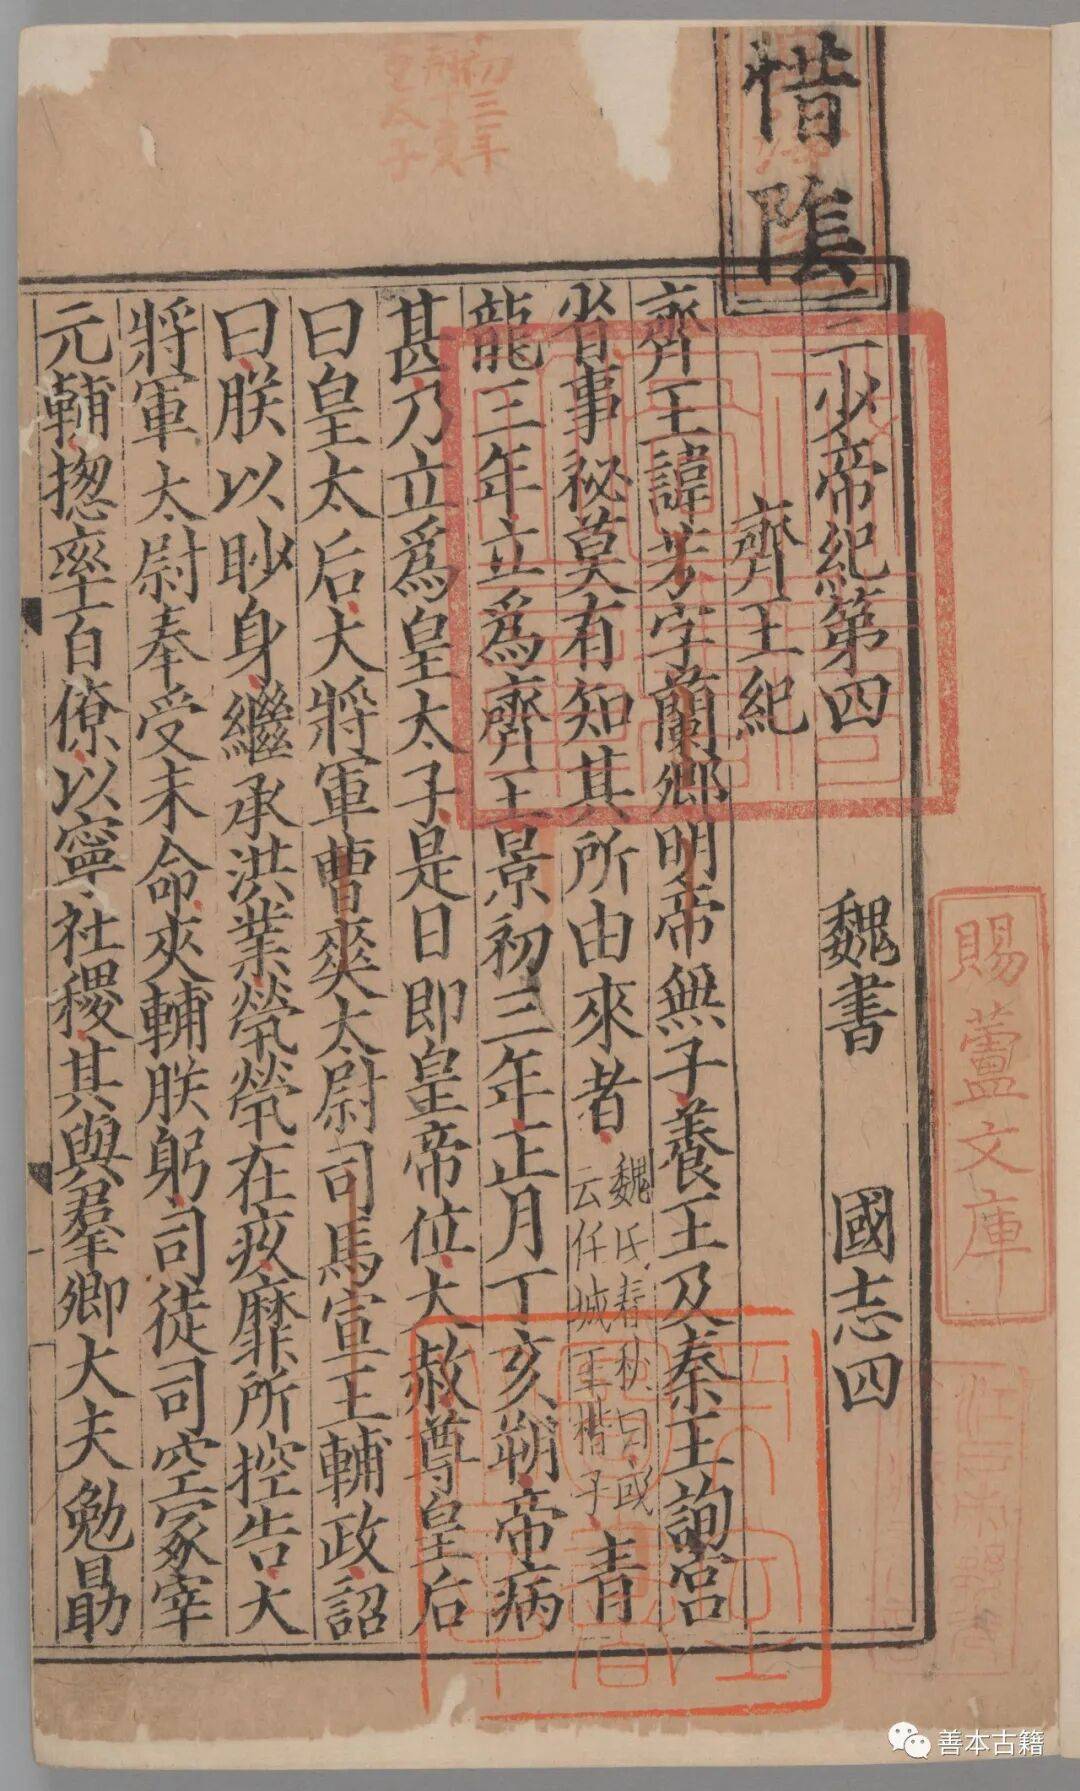 惜陰
三少帝紀第四 魏書 國志四
齊王紀
齊王諱芳字蘭卿明帝無子養王及秦王詢宮
省事秘莫有知其所由來者魏氏春秋曰或云任城王楷子青
龍三年立爲齊王景初三年正月丁亥朔帝病
甚乃立爲皇太子是日即皇帝位大赦尊皇后
曰皇太后大將軍曹爽太尉司馬宣王輔政詔
曰朕以眇身繼承洪業煢煢在疚靡所控告大
將軍太尉奉受末命夾輔朕躬司徒司空冢宰
元輔揔率百僚以寧社稷其與羣卿大夫勉勗
賜蘆文庫
善本古籍